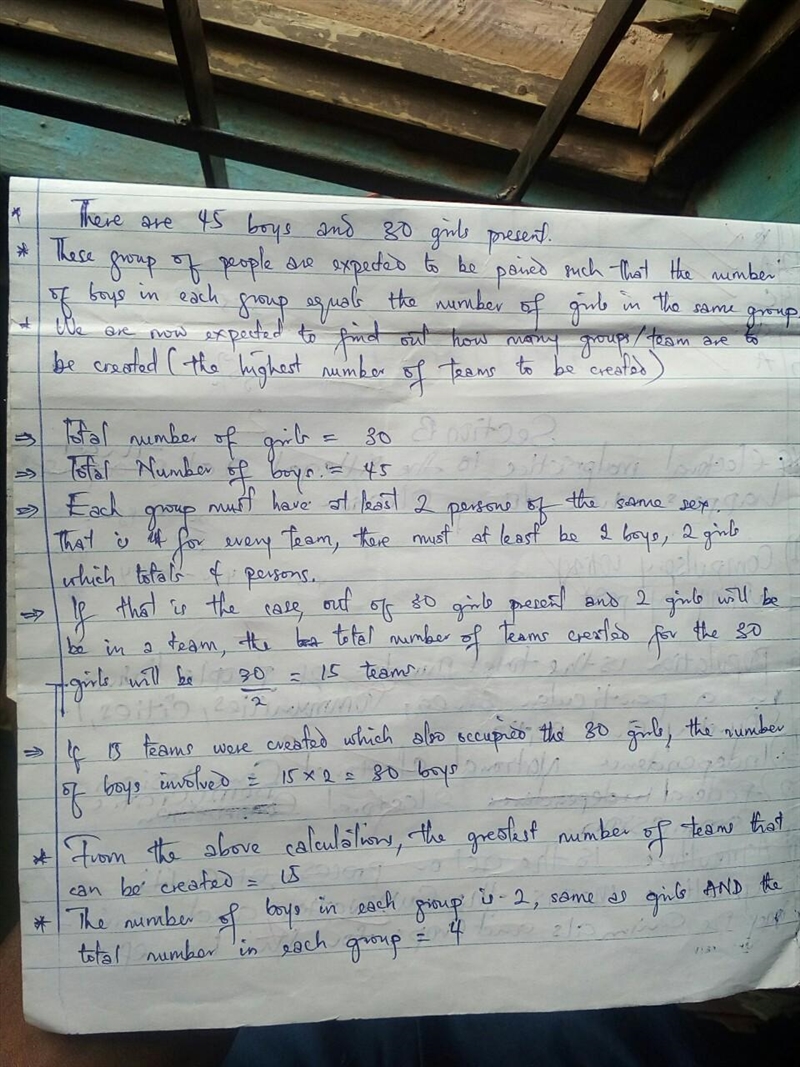 * There are 45 boys and 30 girls present.
* These group of people are expected to be paired such that the number
of boys in each group equals the number of girls in the same group.
* We are now expected to find out how many groups/team are to
be created (the highest number of teams to be created)
⇒ Total number of girls = 30
⇒ Total Number of boys = 45
⇒ Each group must have at least 2 persons of the same sex.
That is for every team, there must at least be 2 boys, 2 girls
which totals 4 persons.
⇒ If that is the case, out of 30 girls present and 2 girls will be
be in a team, the total number of teams created for the 30
girls will be 30/2 = 15 teams
⇒ If 15 teams were created which also occupied the 30 girls, the number
of boys involved = 15 x 2 = 30 boys
* From the above calculation, the greatest number of teams that
can be created = 15
* The number of boys in each group is 2, same as girls AND the
total number in each group = 4